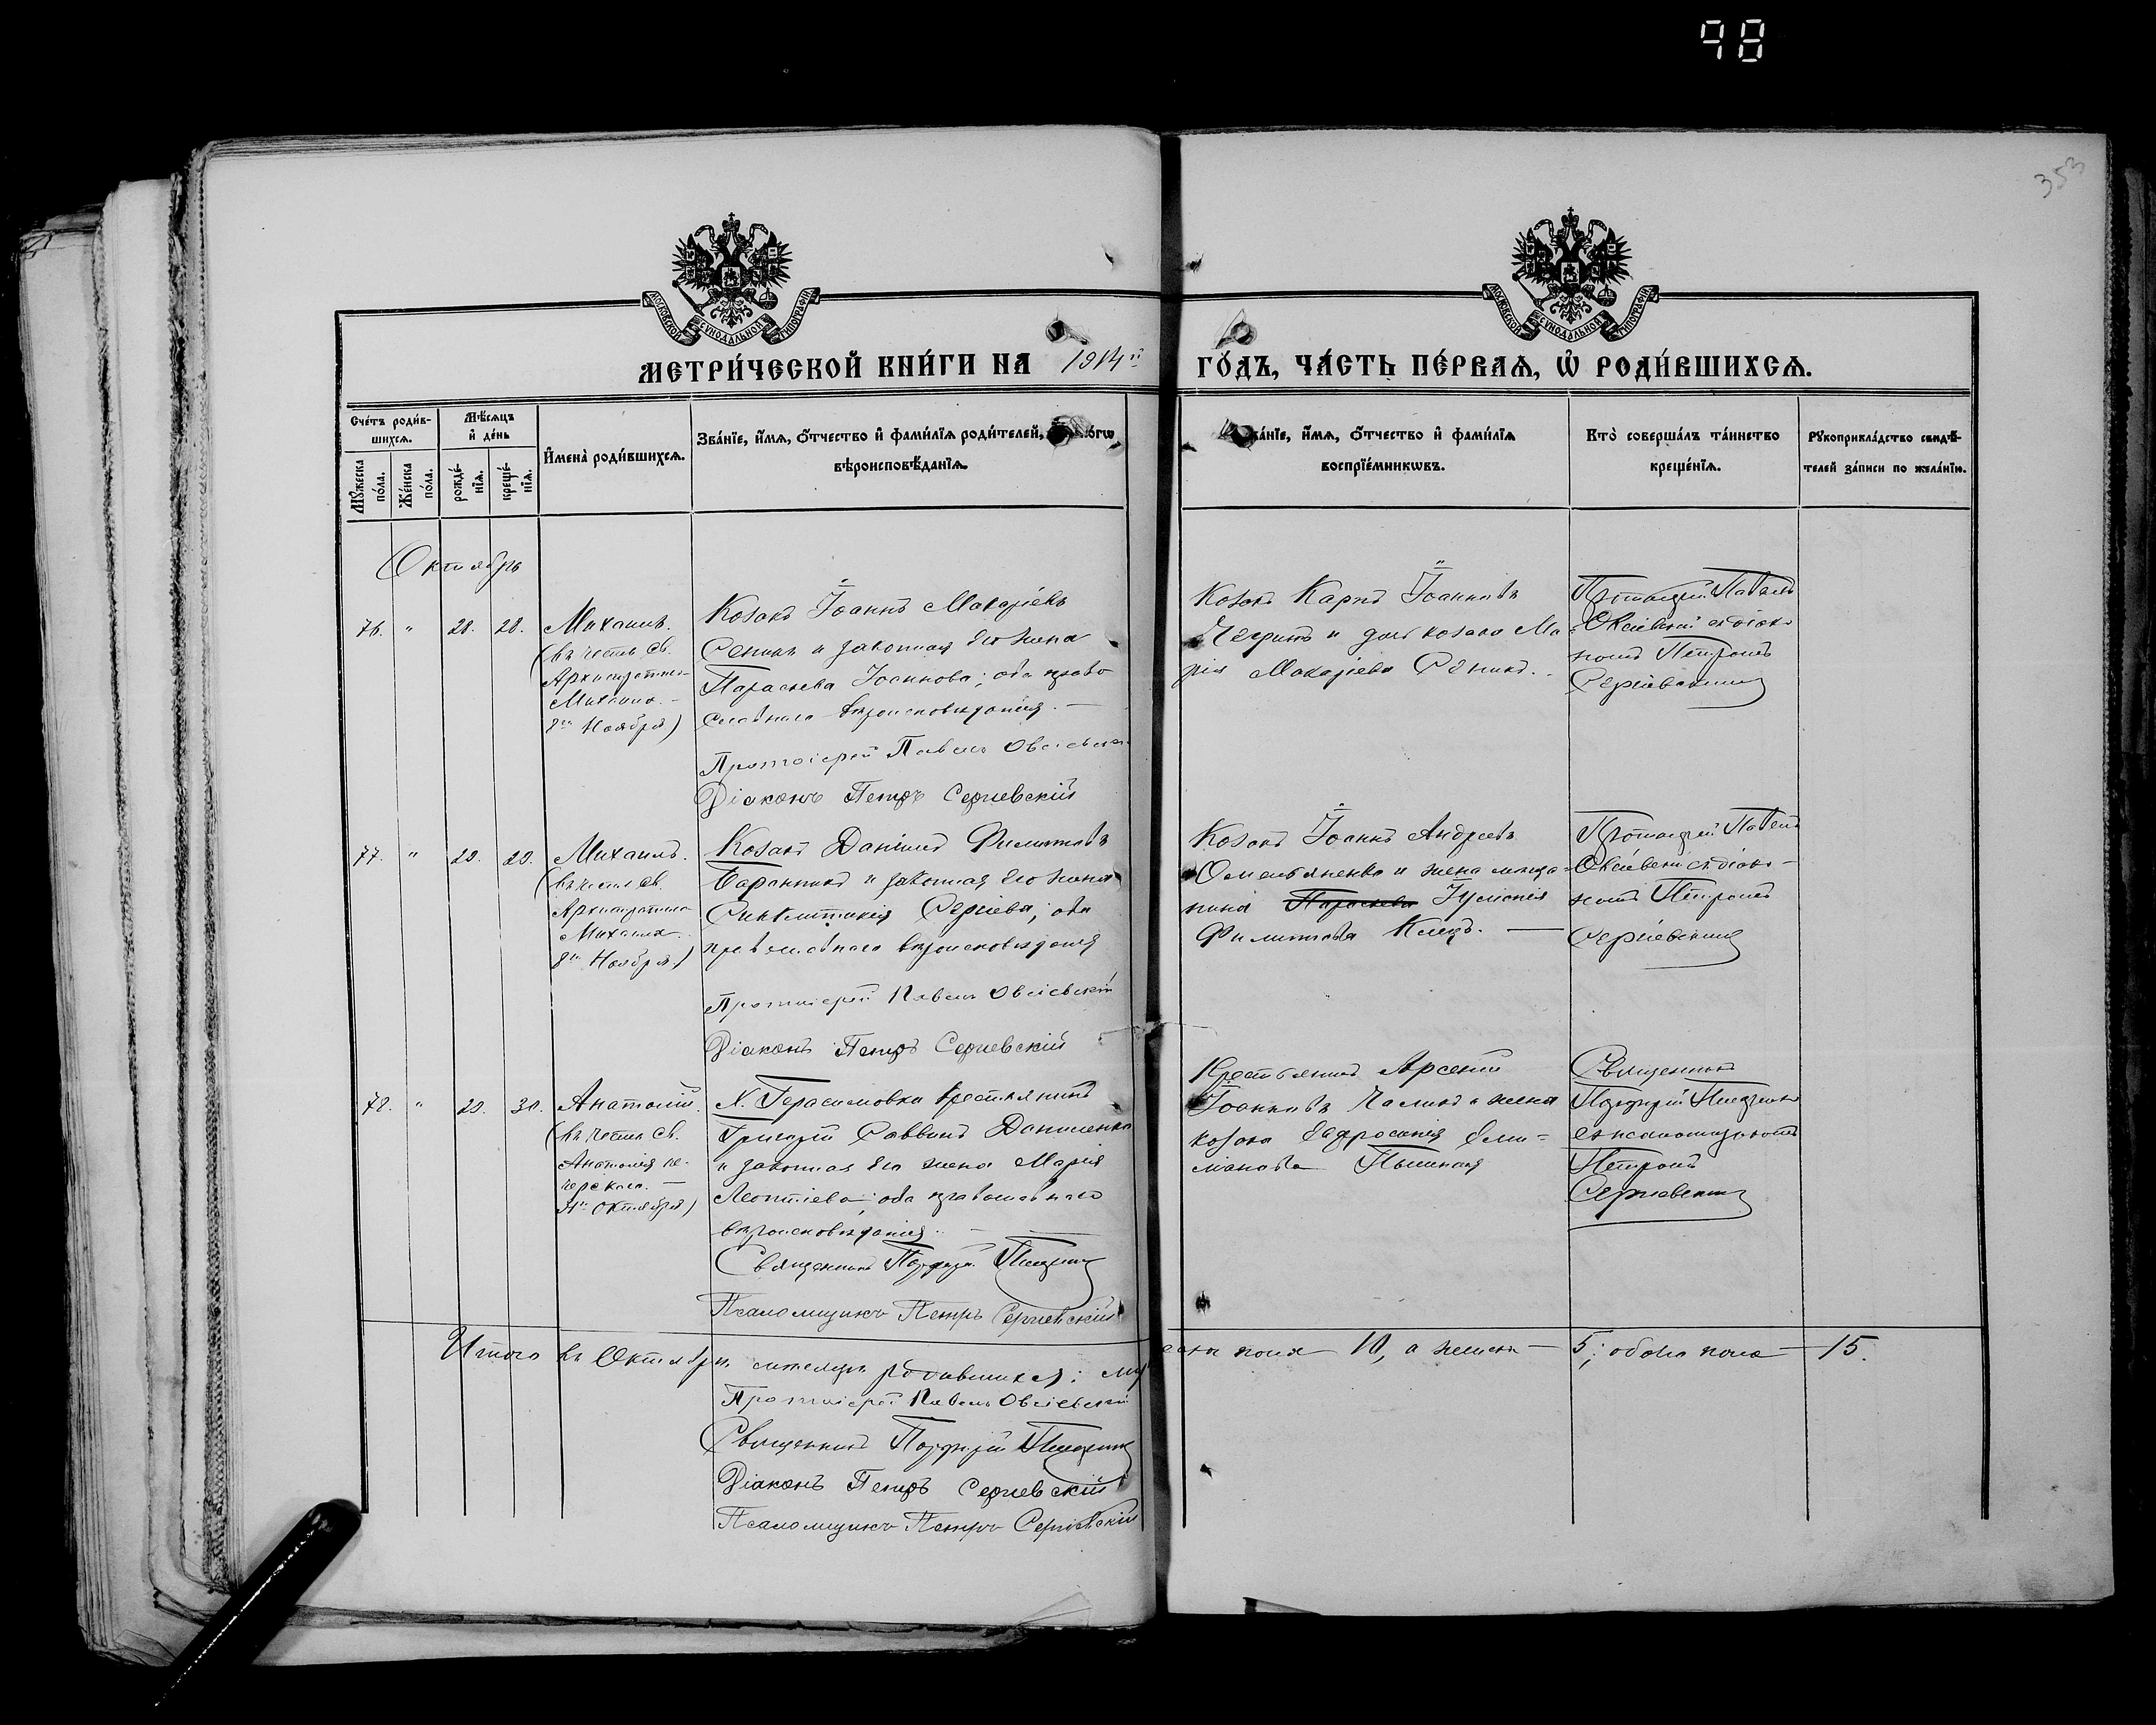 98
353
МОСКОВСКОЙ СУНОДАЛЬНОЙ ТИПОГРАФИИ
МОСКОВСКОЙ СУНОДАЛЬНОЙ ТИПОГРАФИИ
МЕТРИ́ЧЕСКОЙ КНИ́ГИ НА 1914й ГО́ДЪ, ЧА́СТЬ ПЕ́РВАЯ, Ѡ РОДИ́ВШИХСЯ.
Сче́тъ роди́в-
шихся.
Му́жеска по́ла.
Же́нска по́ла.
Мѣ́сяцъ
и де́нь
рожде́-
нїя.
креще́-
нїя.
Имена̀ роди́вшихся.
Зва́нїе, и́мя, о́тчество и фами́лїя роди́телей,
вѣроисповѣ́данїя.
Зва́нїе, и́мя, о́тчество и фами́лїя
воспрїе́мникѡвъ.
Кто̀ соверша́лъ та́инство
креще́нїя.
Рукоприкла́дство свидѣ́-
телей за́писи по жела́нїю.
Октябрь
76. " 28. 28. Михаилъ.
(въ честь Св.
Архистратига
Михаила. –
8го Ноября)
Козакъ Іоаннъ Макаріевъ
Сенинъ и законная его жена
Параскева Іоаннова; оба право
славнаго вѣроисповѣданія. –
Протоіерей Павелъ Овсіевскій
Діаконъ Петръ Сергіевскій
Козакъ Карпъ Іоанновъ
и дочь козака Ма
рія Макаріева Сенинъ.
Протоіерей Павелъ
Овсіевскій съ діако-
номъ Петромъ
Сергіевскимъ
77. " 29. 29. Михаилъ.
(въ честь Св.
Архистратига
Михаила.
8го Ноября.)
Козакъ Даніилъ Филипповъ
Баранникъ и законная его жена
Синклитикія Сергіева; оба
православнаго вѣроисповѣданія
Протоіерей Павелъ Овсіевскій
Діаконъ Петръ Сергіевскій
Козакъ Іоаннъ Андреевъ
Омельяненко и жена мѣща-
нина Параскева Іуліанія
Филиппова Клецъ. —
Протоіерей Павелъ
Овсіевскій съ діако-
номъ Петромъ
Сергіевскимъ
78. " 29. 30. Анатолій.
(въ честь Св.
Анатолія пе-
черскаго. —
31го Октября)
Х. Герасимовка крестьянинъ
Григорій Саввинъ Даниленко
и законная его жена Марія
Леонтіева; оба православнаго
вѣроисповѣданія.
Священникъ Порфирій
Псаломщикъ Петръ Сергіевскій
Крестьянинъ Арсеній
Іоанновъ и жена
козака Евфросинія Еми-
ліанова
Священникъ
Порфирій
съ псаломщикомъ
Петромъ
Сергіевскимъ
Итого въ Октябрѣ мѣсяцѣ родившихся: муж
еска пола — 10, а женска — 5; обоего пола — 15.
Протоіерей Павелъ Овсіевскій
Священникъ Порфирій
Діаконъ Петръ Сергіевскій
Псаломщикъ Петръ Сергіевскій